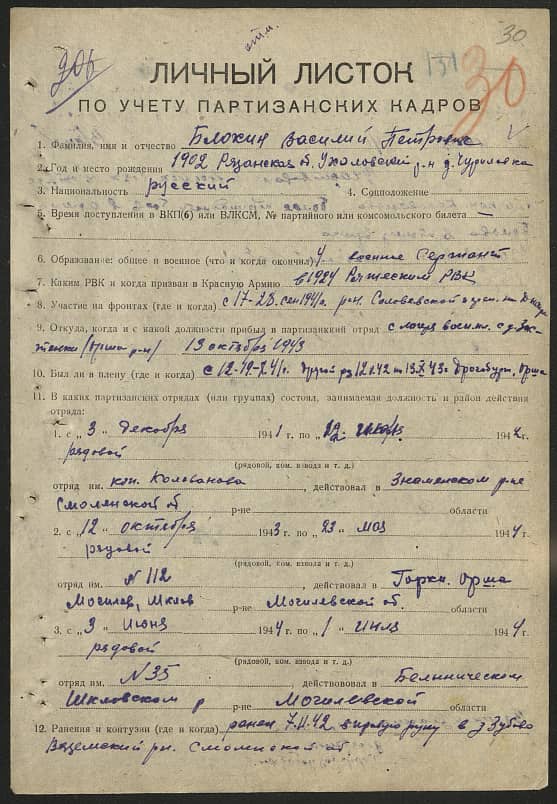 30
906
131
30
ЛИЧНЫЙ ЛИСТОК
ПО УЧЕТУ ПАРТИЗАНСКИХ КАДРОВ
1. Фамилия, имя и отчество Блохин Василий Петрович
2. Год и место рождения 1902 Рязанская об. Ухоловский р-н д. Чуриловка
3. Национальность русский 4. Соцположение —
5. Время поступления в ВКП(б) или ВЛКСМ, № партийного или комсомольского билета —
6. Образование: общее и военное (что и когда окончил) 4 военное Сержант
7. Каким РВК и когда призван в Красную Армию в 1924 Ряжским РВК
8. Участие на фронтах (где и когда) с 17-28 сен 1941 г.
9. Откуда, и с какой должности прибыл в партизанский отряд с лагеря военн.
(Орша р-н) 13 октября 1943
10. Был ли в плену (где и когда) Орша
11. В каких партизанских отрядах (или группах) состоял, занимаемая должность и район действия
отряда:
1. с „3" декабря 1941 г. по 1942 г.
рядовой
(рядовой, ком. взвода и т. д.)
отряд им. Колованова, действовал в Знаменском р-не
Смоленской об р-не области
2. с „12" октября 1943 г. по „23" мая 1944 г.
рядовой
(рядовой, ком. взвода и т. д.)
отряд им. №112, действовал в Горки. Орша
Могилев, Шклов р-не Могилевской об. области
3. с „3" Июня 1944 г. по „1" июля 1944 г.
рядовой
(рядовой, ком. взвода и т. д.)
отряд им. №35 действовал в Белыническом
Шкловском р Могилевской области
12. Ранения и контузии (где и когда) ранен 7.II.42 в правую руку в д Зубово
Вяземский рн. Смоленской об